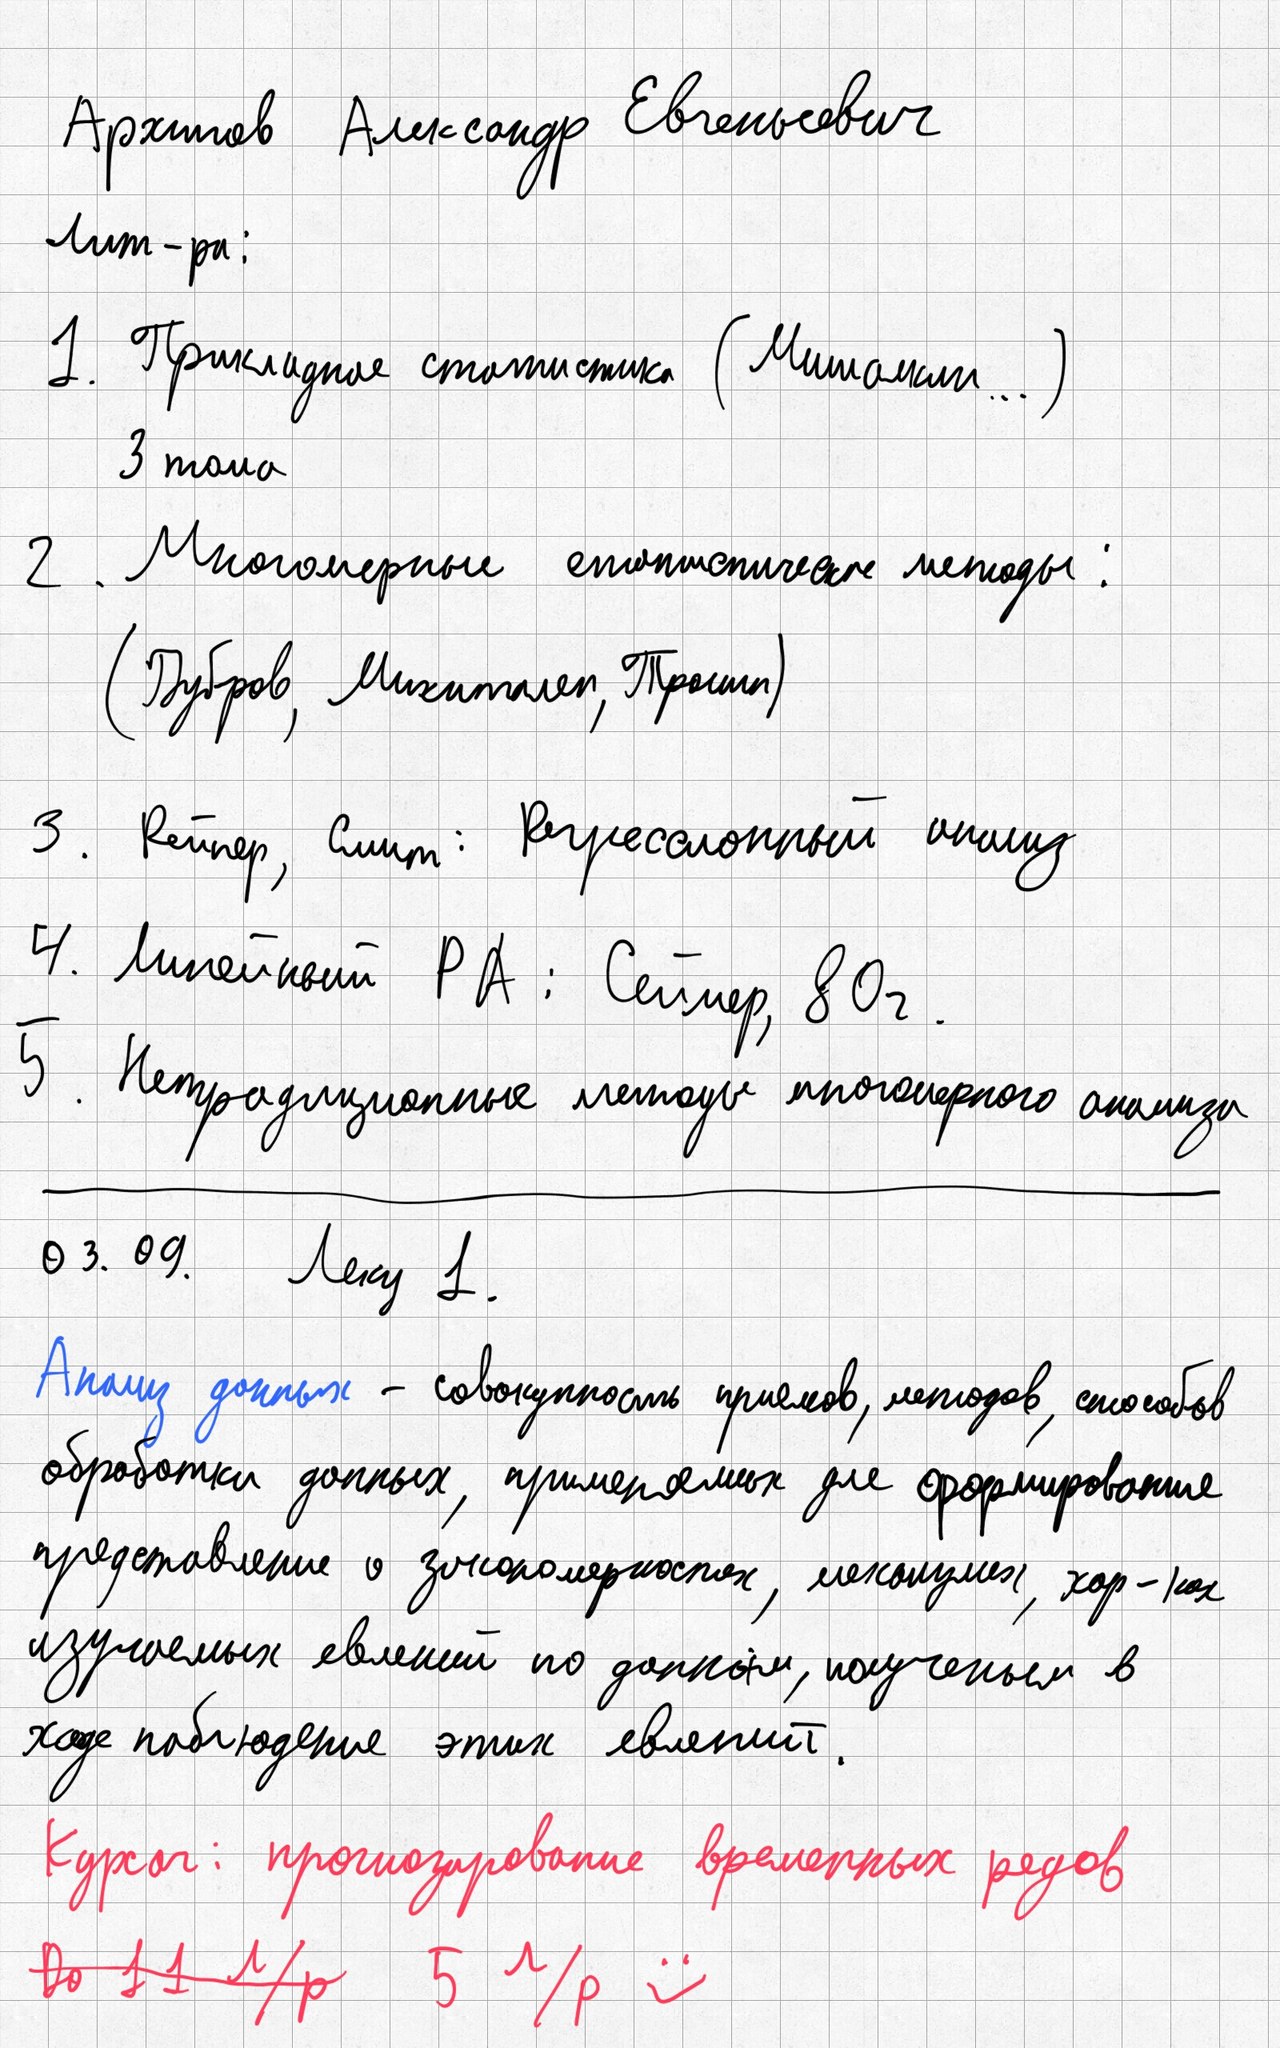 Архипов Александр Евгеньевич
Лит-ра:
1. Прикладная статистика (
3 тома
2. Многомерные статистические методы:
(Дубров, Мхитарян, Трошин)
3. Смит: Регрессионный анализ
4. Линейный РА: 80г.
5. Нетрадиционные методы многомерного анализа
03.09. Лекц 1.
Анализ данных - совокупность приемов, методов, способов
обработки данных, применяемых для формирование
представление о закономерностях, механизмах, хар-ках
изучаемых явлений по данным, полученым в
ходе наблюдение этих явлений.
Курсач: прогнозирование временных рядов
До 11 л/р 5 л/р